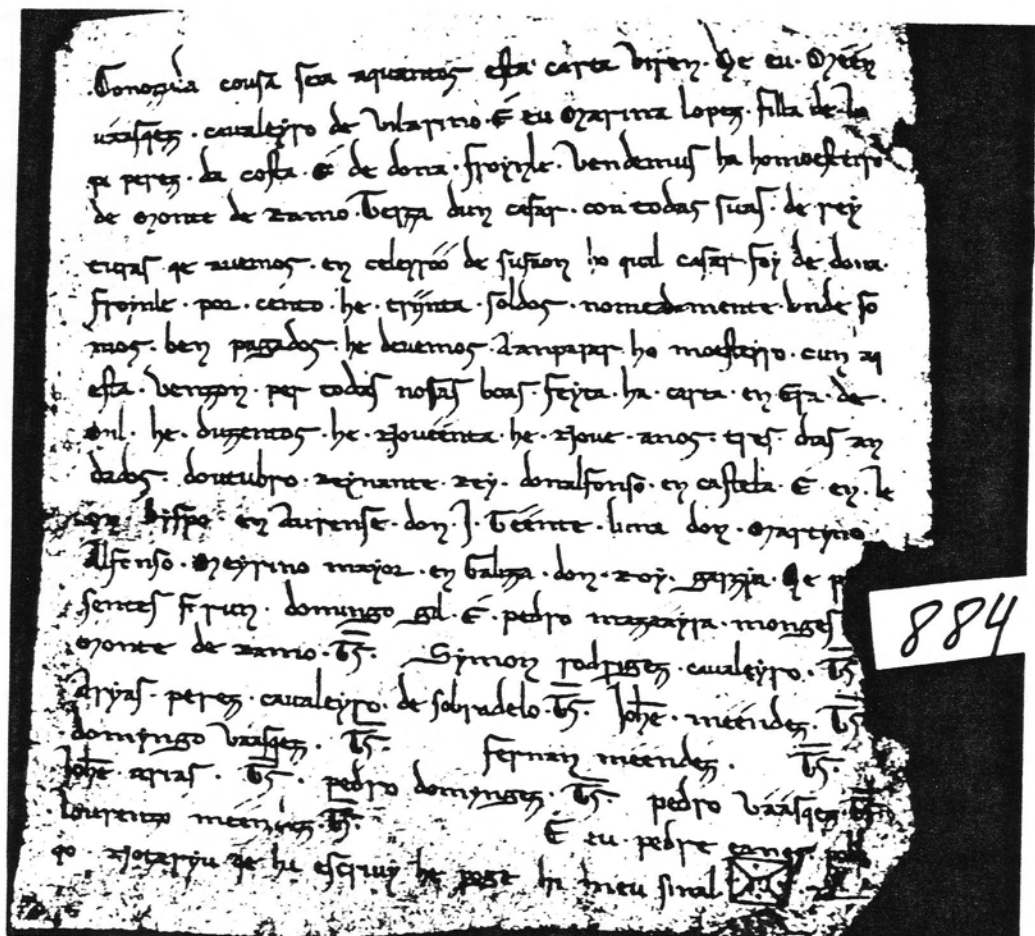 Conozuda cousa seia aquantos esta carta viren. Qe eu. Meen
vaasqez. cavaleyro de vilarino. E eu Marina lopez. filla de lo
pe perez. da costa. E de dona. froynle. Vendemus ha ho moesteyro
de Monte de Ramo. Terza dun casar. con todas suas. de rey
turas qe avemos. en celeyroo de susaon ho qual casar foy de dona.
froynle. por. cento. he. triinta. soldos. nomeadamente. unde so
mos. ben pagados. he devemos. Aanparar. ho moesteyro. cun aq
esta. venzon. per todas nosas boas. feyta. ha. carta. en Era. de.
Mil. he. duzentos. he. Noveenta. he. Nove. anos. tres. dias an
dados. doutubro. Reynante. Rey. donalfonso. en castela. E. en. le
on. bispo. en Aurense. don. J. Teente. lima don. Martyno
Alfonso. Meyrino mayor. en Galiza. don. Roy. garzia. Qe p
sentes frun. domingo gil. E. pedro mazaayra. monges
Monte de Ramo. ts. Symon rodrigez. cavaleyro. ts.
Aryas. perez. cavaleyro. de sobradelo. ts. Johe. meendez. ts.
domyngo vaasqez. ts. fernan meendez. ts.
Johe. arias. ts. pedro domyngez. ts. pedro vaasqez. ts.
lourenzo meendez. ts. E eu. pedre eanes
Notaryu qe hu escrivy he poge hi meu sinal
884